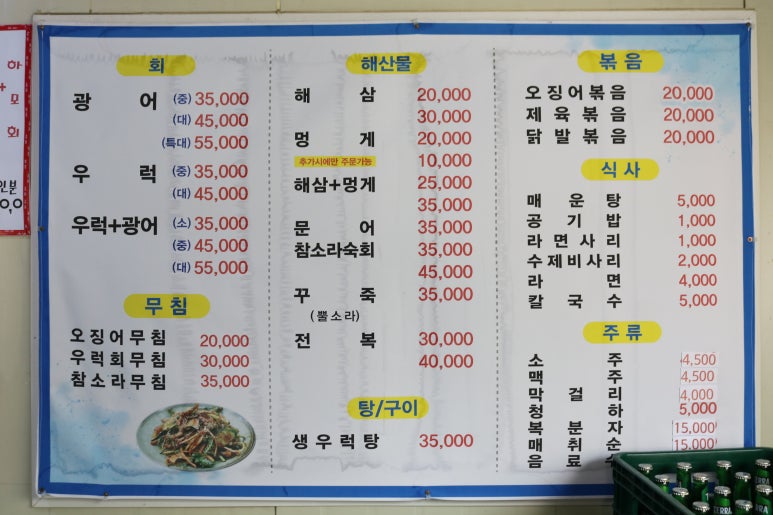 하
+
모
회
인분
0,0
회
광 어 (중) 35,000
(대) 45,000
(특대) 55,000
우 럭 (중) 35,000
(대) 45,000
우럭+광어 (소) 35,000
(중) 45,000
(대) 55,000
무 침
오징어무침 20,000
우럭회무침 30,000
참소라무침 35,000
해산물
해 삼 20,000
30,000
멍 게 20,000
추가시에만 주문가능 10,000
해삼+멍게 25,000
35,000
문 어 35,000
참소라숙회 35,000
45,000
꾸 죽 35,000
(뿔소라)
전 복 30,000
40,000
탕/구이
생우럭탕 35,000
볶 음
오징어볶음 20,000
제육볶음 20,000
닭발볶음 20,000
식 사
매 운 탕 5,000
공 기 밥 1,000
라면사리 1,000
수제비사리 2,000
라 면 4,000
칼 국 수 5,000
주 류
소 주 4,500
맥 주 4,500
막 걸 리 4,000
청 하 5,000
복 분 자 15,000
매 취 순 15,000
음 료 수
TERRA